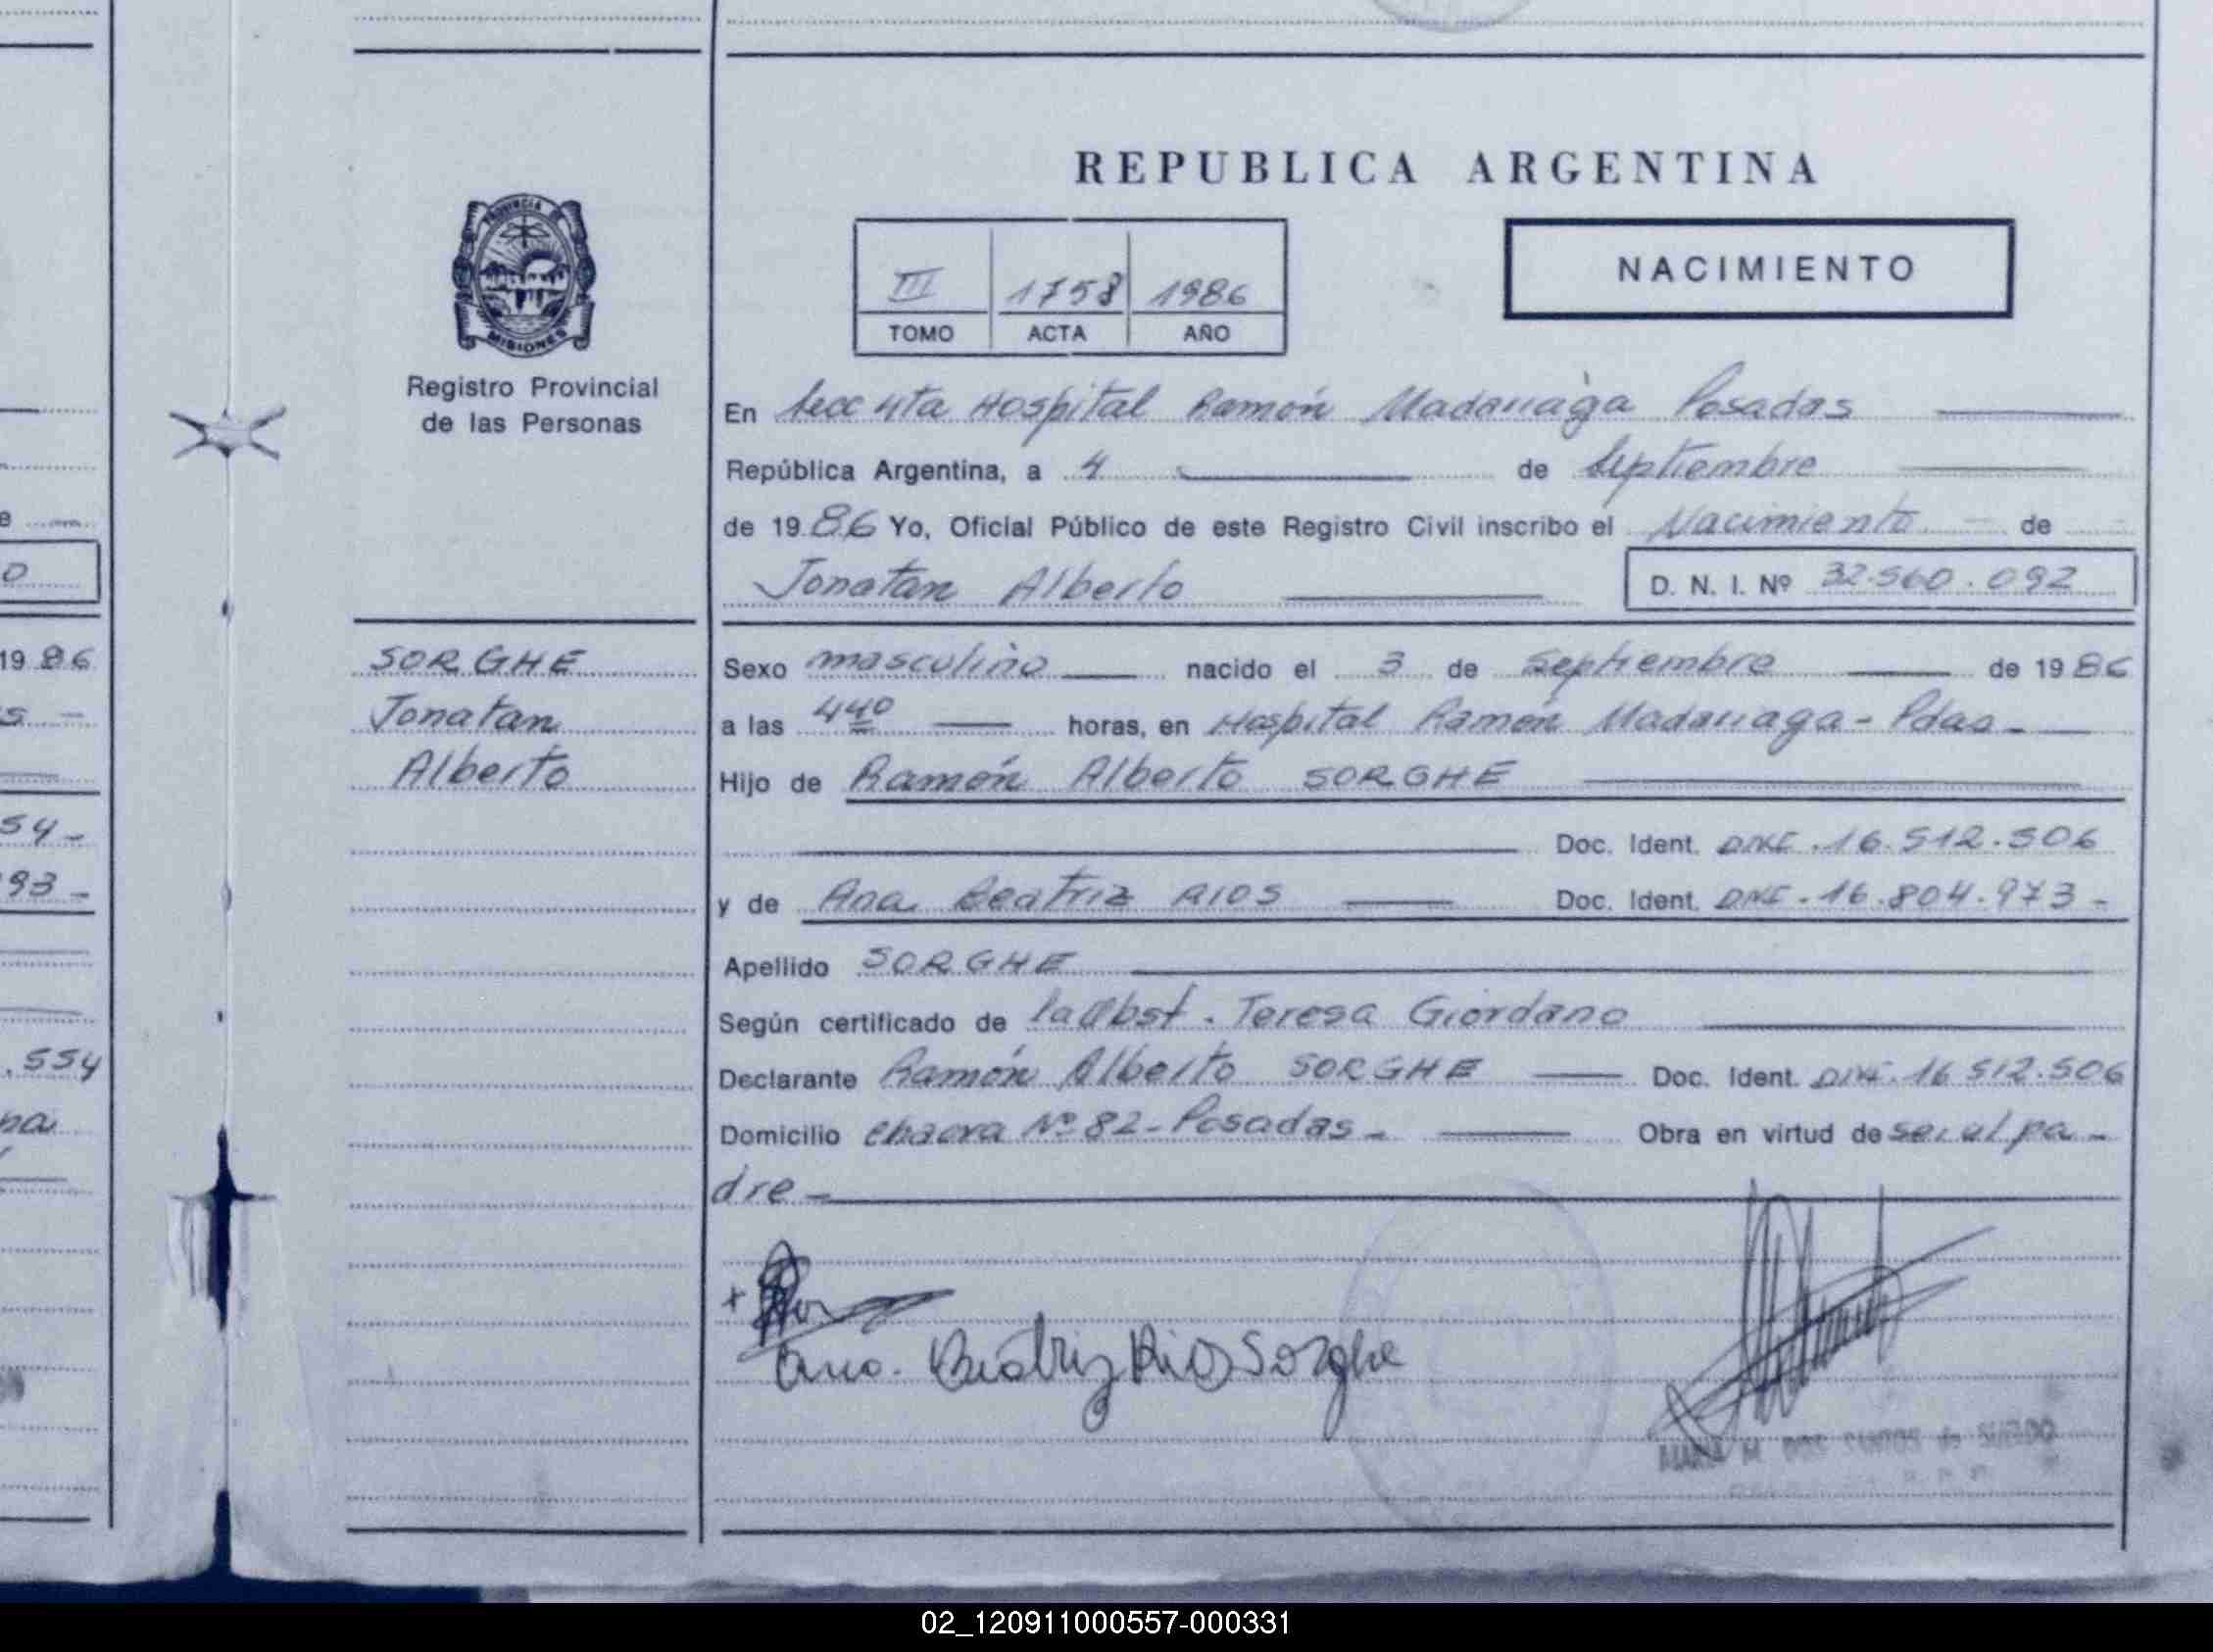 REPUBLICA ARGENTINA
PROVINCIA DE
MISIONES
Registro Provincial
de las Personas
III 1758 1986
TOMO ACTA AÑO
NACIMIENTO
En Secc 4ta Hospital Ramón Madariaga Posadas
República Argentina, a 4 de Septiembre
de 1986 Yo, Oficial Público de este Registro Civil inscribo el Nacimiento de
Jonatan Alberto D. N. I. Nº 32.560.092
SORGHE
Jonatan
Alberto
Sexo masculino nacido el 3 de Septiembre de 1986
a las 4 40 horas, en Hospital Ramón Madariaga - Pdas -
Hijo de Ramón Alberto SORGHE
Doc. Ident. DNI. 16.512.506
y de Ana Beatriz RIOS Doc. Ident. DNI. 16.804.973 -
Apellido SORGHE
Según certificado de la Obst. Teresa Giordano
Declarante Ramón Alberto SORGHE Doc. Ident. DNI. 16 512.506
Domicilio Chacra Nº 82 - Posadas - Obra en virtud de ser el pa -
dre -
Ana. Beatriz Rios Sorghe
MARIA M. DOS SANTOS de
e
0
19 86
s -
54 -
93 -
.554
na
02_120911000557-000331